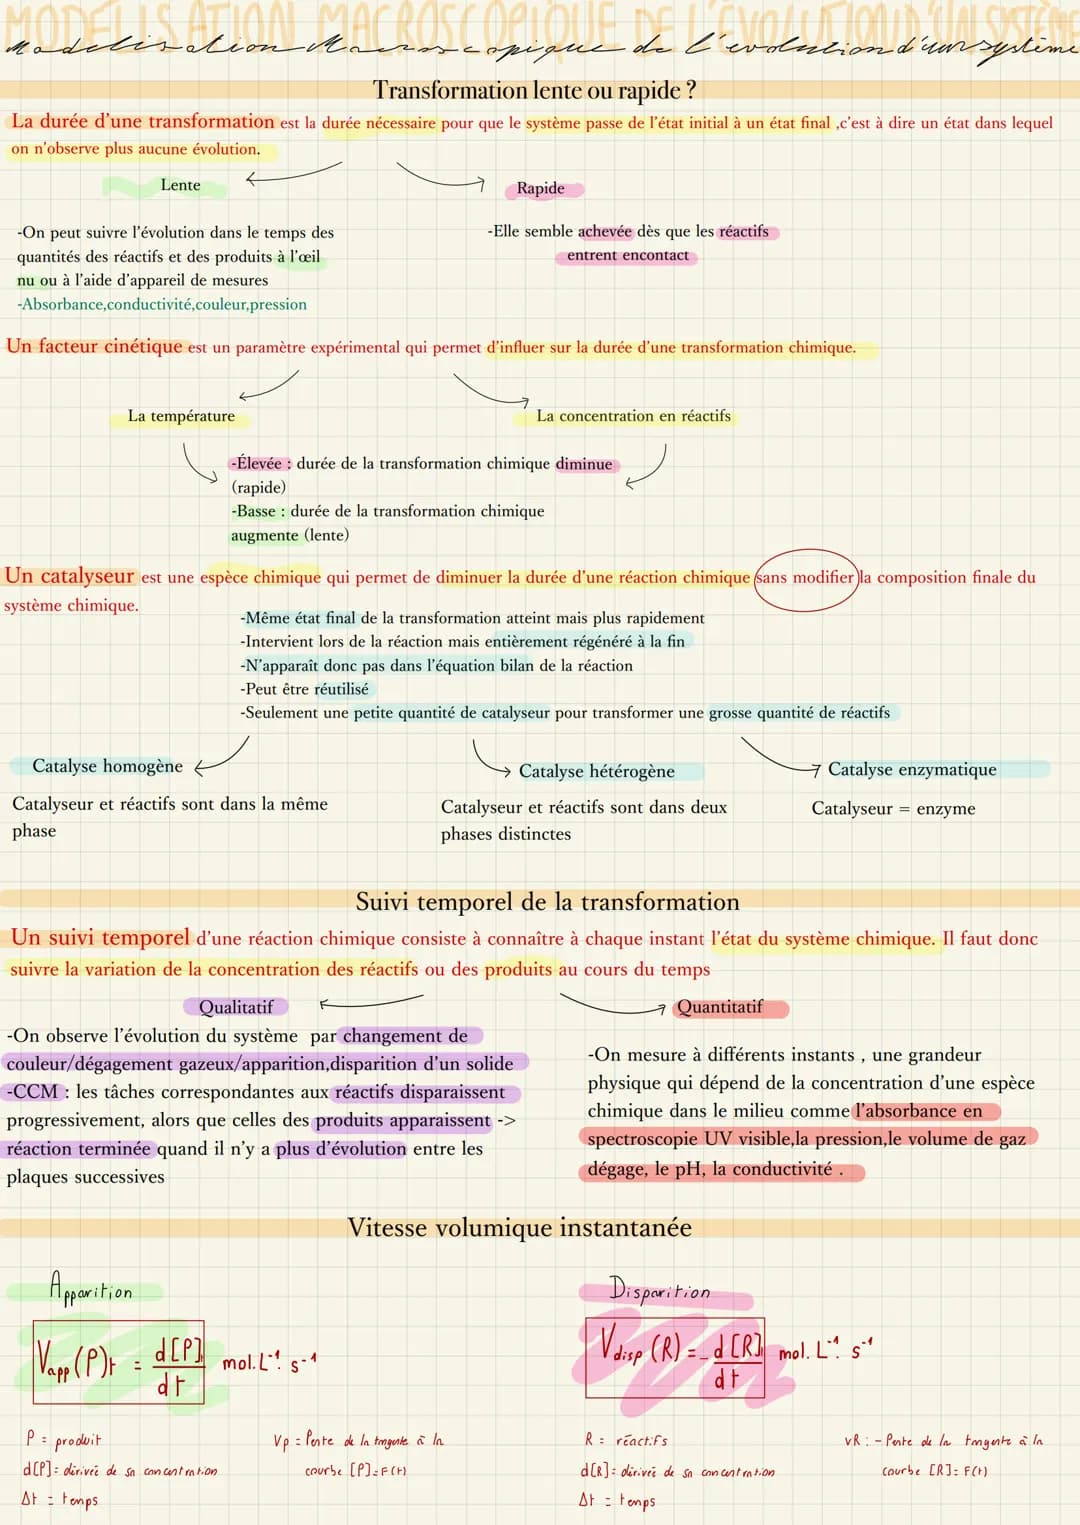 MODÉLISATION MACROSCOPIQUE DE L'ÉVOLUTION D'UN SYSTÈME
Modélisation Macroscopique de l'évolution d'un système
Transformation lente ou rapide ?
La durée d'une transformation est la durée nécessaire pour que le système passe de l'état initial à un état final ,c'est à dire un état dans lequel
on n'observe plus aucune évolution.
Lente
Rapide
-On peut suivre l'évolution dans le temps des
quantités des réactifs et des produits à l'œil
nu ou à l'aide d'appareil de mesures
-Absorbance,conductivité,couleur,pression
-Elle semble achevée dès que les réactifs
entrent encontact
Un facteur cinétique est un paramètre expérimental qui permet d'influer sur la durée d'une transformation chimique.
La température
La concentration en réactifs
-Élevée : durée de la transformation chimique diminue
(rapide)
-Basse : durée de la transformation chimique
augmente (lente)
Un catalyseur est une espèce chimique qui permet de diminuer la durée d'une réaction chimique sans modifier la composition finale du
système chimique.
-Même état final de la transformation atteint mais plus rapidement
-Intervient lors de la réaction mais entièrement régénéré à la fin
-N'apparaît donc pas dans l'équation bilan de la réaction
-Peut être réutilisé
-Seulement une petite quantité de catalyseur pour transformer une grosse quantité de réactifs
Catalyse homogène
Catalyse hétérogène
Catalyse enzymatique
Catalyseur et réactifs sont dans la même
phase
Catalyseur et réactifs sont dans deux
phases distinctes
Catalyseur = enzyme
Suivi temporel de la transformation
Un suivi temporel d'une réaction chimique consiste à connaître à chaque instant l'état du système chimique. Il faut donc
suivre la variation de la concentration des réactifs ou des produits au cours du temps
Qualitatif
Quantitatif
-On observe l'évolution du système par changement de
couleur/dégagement gazeux/apparition,disparition d'un solide
-CCM : les tâches correspondantes aux réactifs disparaissent
progressivement, alors que celles des produits apparaissent ->
réaction terminée quand il n'y a plus d'évolution entre les
plaques successives
-On mesure à différents instants , une grandeur
physique qui dépend de la concentration d'une espèce
chimique dans le milieu comme l'absorbance en
spectroscopie UV visible,la pression,le volume de gaz
dégage, le pH, la conductivité .
Vitesse volumique instantanée
Apparition
Disparition
Vapp (P)t = d[P] / dt mol.L⁻¹. s⁻¹
Vdisp (R) = - d[R] / dt mol. L⁻¹. s⁻¹
P = produit
d[P]= dérivée de sa concentration
Δt = temps
Vp = Pente de la tangente à la
courbe [P]=F(t)
R = réactifs
d[R]= dérivée de sa concentration
Δt = temps
vR : - Pente de la tangente à la
courbe [R]= F(t)